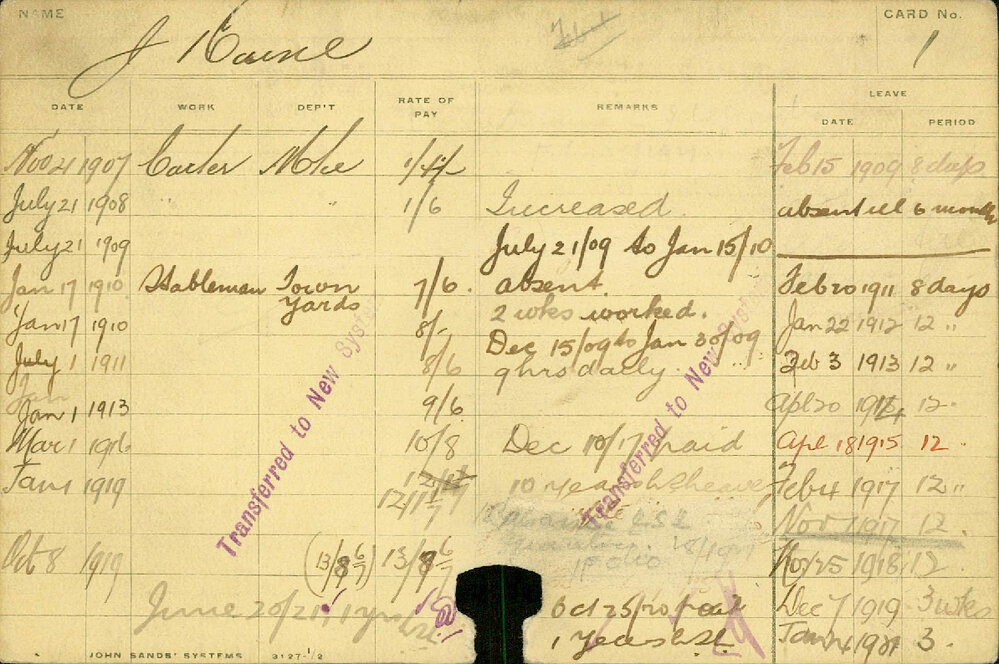 NAME
CARD No.
J Kane
1
DATE WORK DEP'T RATE OF PAY REMARKS LEAVE
DATE PERIOD
Nov 21 1907 Carter 1/4 Feb 15 1909 8 days
July 21 1908 " " 1/6 Increased absent ill 6 months
July 21 1909 July 21/09 to Jan 15/10
Jan 17 1910 Stableman Town Yards 7/6 absent. Feb 20 1911 8 days
Jan 17 1910 8/- 2 wks worked. Jan 22 1912 12 "
Dec 15/09 to Jan 30/09
July 1 1911 8/6 9 hrs daily Feb 3 1913 12 "
Jan 1 1913 9/6 Apl 20 1914 12 "
Mar 1 1916 10/8 Dec 10/17 paid Apl 18 1915 12 "
Jan 1 1919 10 years Feb 4 1917 12 "
12/11 Nov 1917 12
Oct 8 1919 (13/8 6/7) 13/8 6/7 Nov 25 1918 12
June 20/21 1 yrs Oct 25/20 Dec 7 1919 3 wks
1 years Jan 4 1921 3
Transferred to New System
Transferred to New System
JOHN SANDS' SYSTEMS 3127-1/2